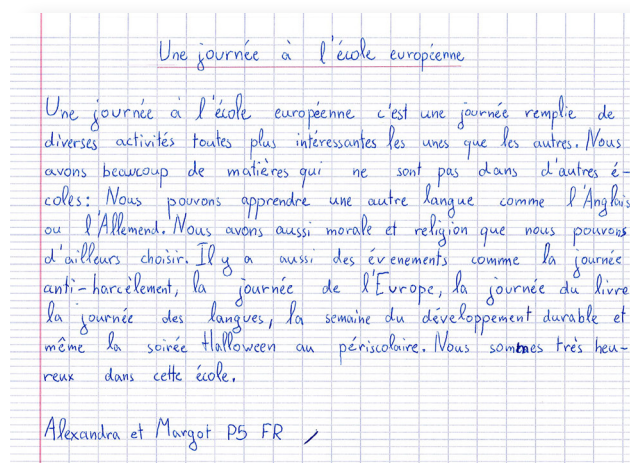 Une journée à l'école européenne
Une journée à l'école européenne c'est une journée remplie de
diverses activités toutes plus intéressantes les unes que les autres. Nous
avons beaucoup de matières qui ne sont pas dans d'autres é-
coles: Nous pouvons apprendre une autre langue comme l'Anglais
ou l'Allemend. Nous avons aussi morale et religion que nous pouvons
d'ailleurs choisir. Il y a aussi des évenements comme la journée
anti-harcèlement, la journée de l'Europe, la journée du livre
la journée des langues, la semaine du développement durable et
même la soirée Halloween au périscolaire. Nous sommes très heu-
reux dans cette école.
Alexandra et Margot P5 FR